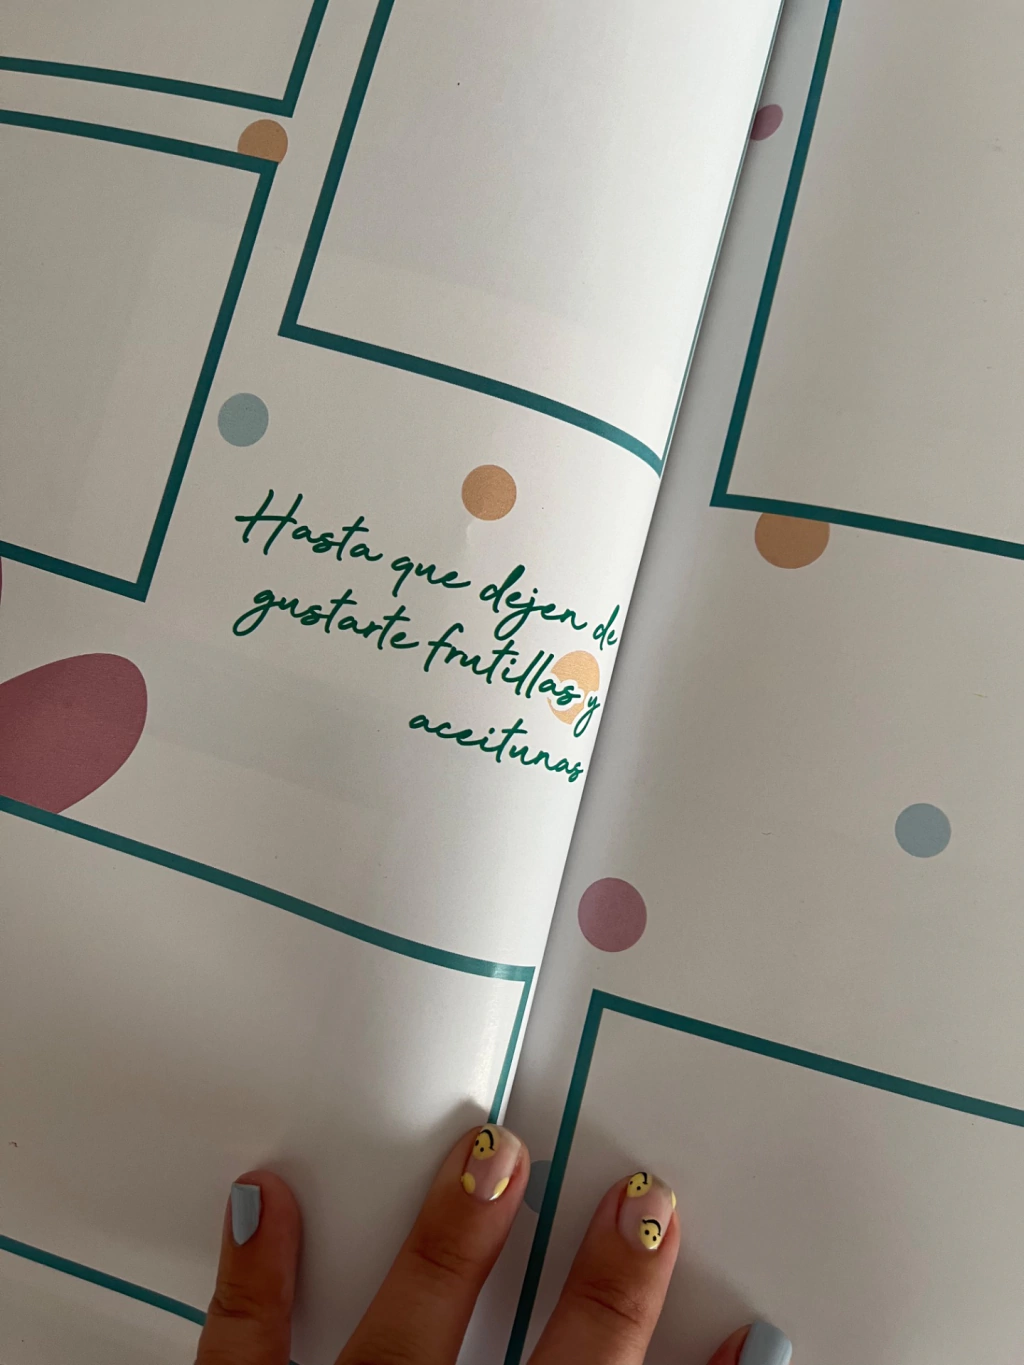 Hasta que dejen de
gustarte frutillas y
aceitunas